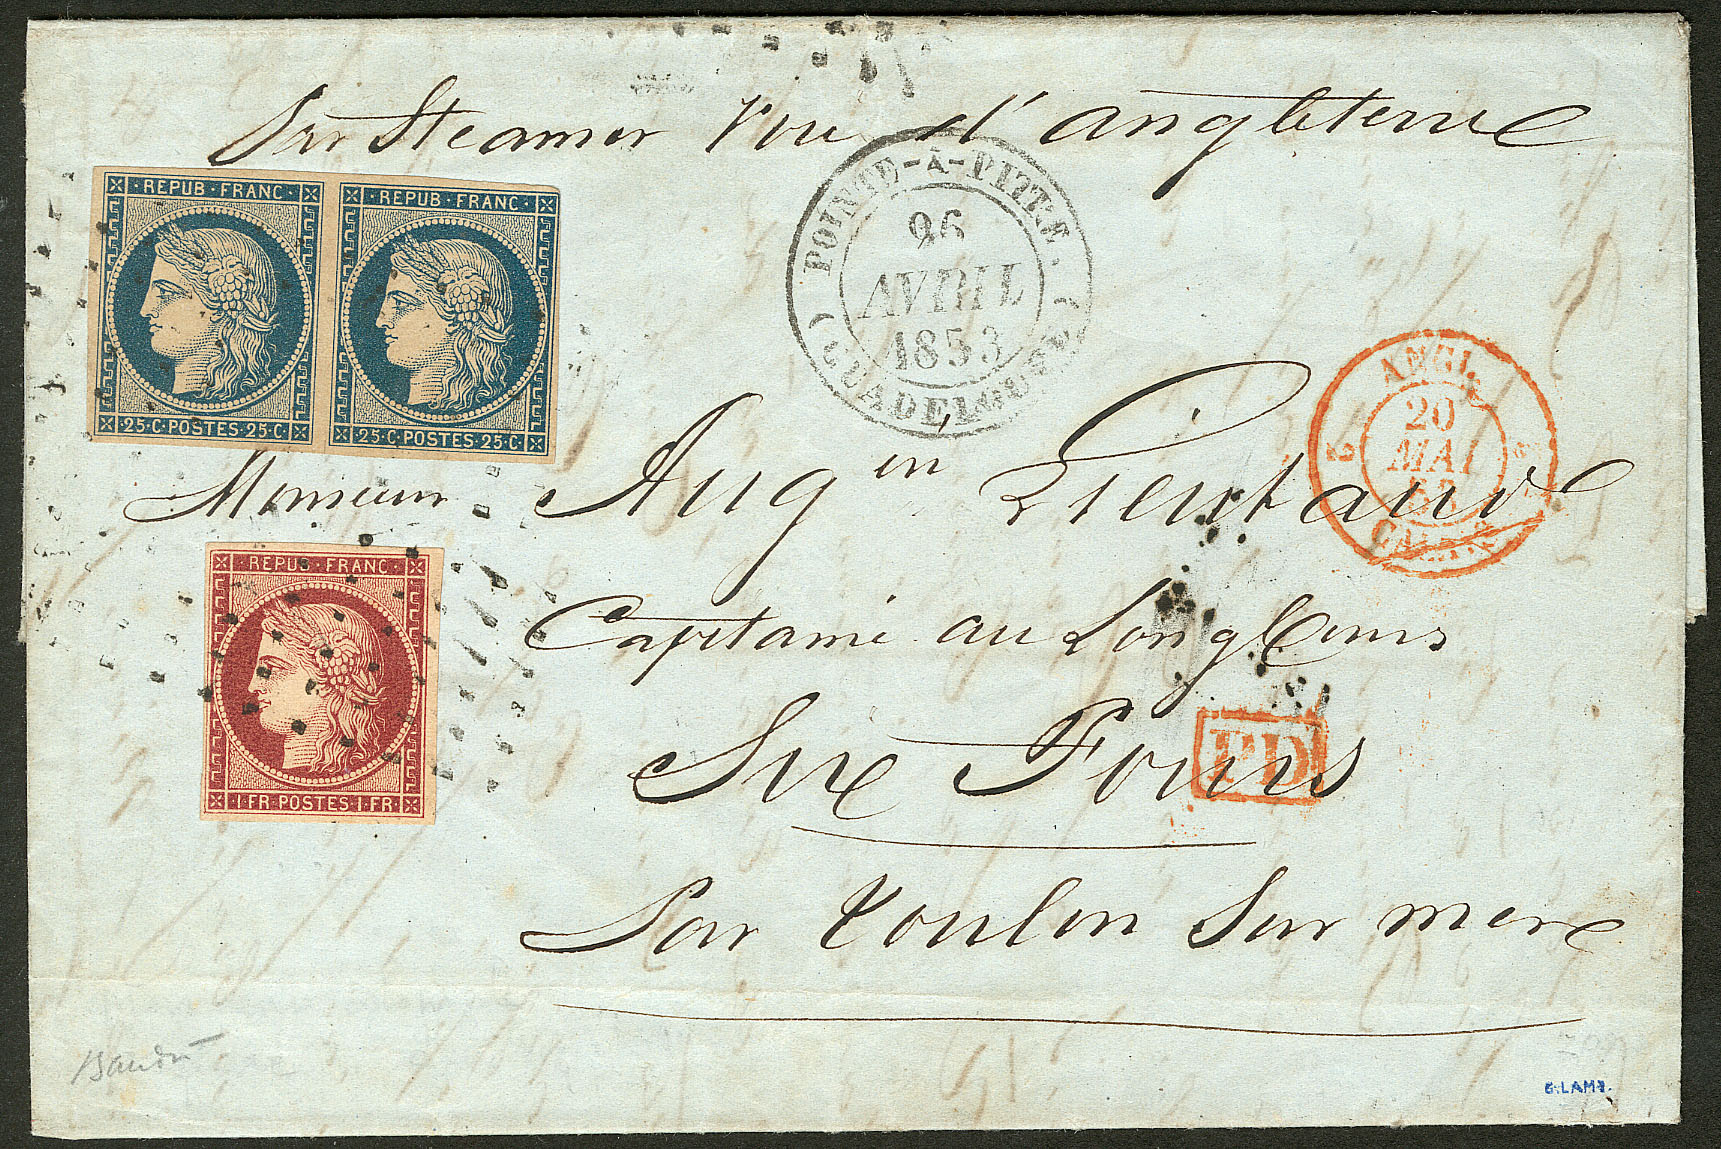 Par Steamer Voie d'angleterre
REPUB·FRANC·
25·C·POSTES·25·C·
REPUB·FRANC·
25·C·POSTES·25·C
POINTE-À-PITRE
26
AVRIL
1853
(GUADELOUPE)
ANGL.
2 2
20
MAI
53
CALAIS
Monsieur Aug in Lieutaud
REPUB·FRANC·
1·FR·POSTES·1·FR·
Capitaine au Long Cours
Six Fours
PD
Par Toulon Sur mere
Baudin
G.LAMY.